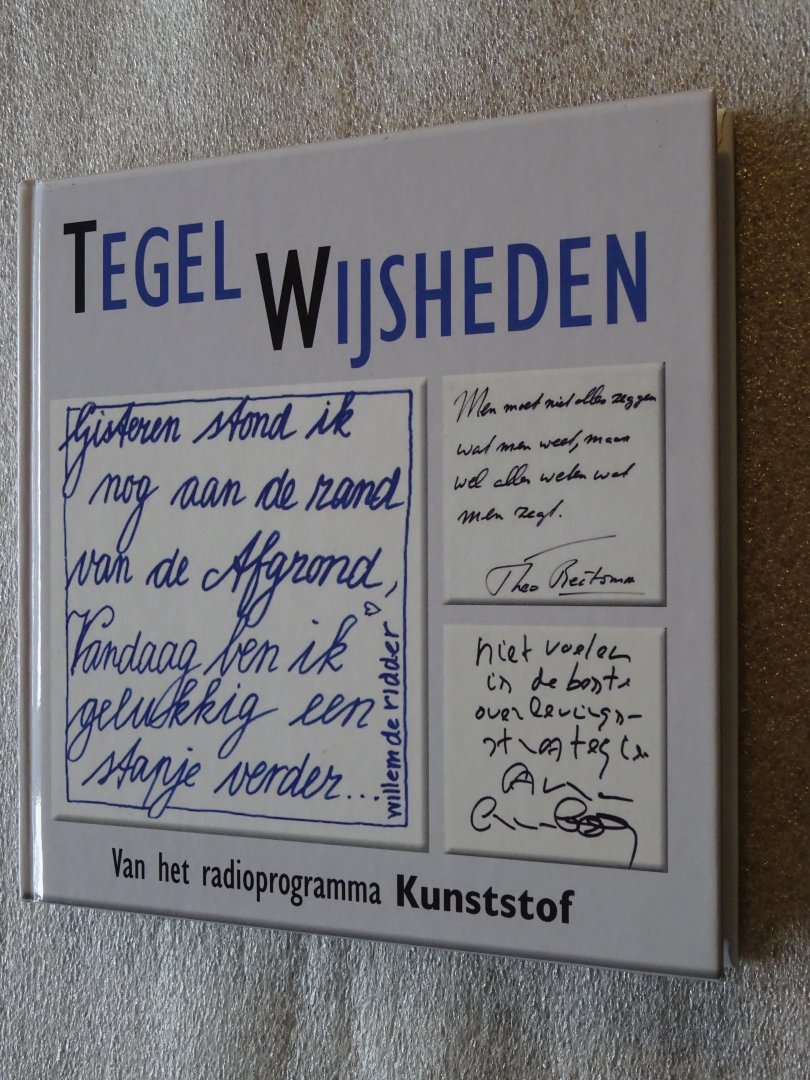 TEGEL WIJSHEDEN
Gisteren stond ik
nog aan de rand
van de Afgrond,
Vandaag ben ik
gelukkig een
stapje verder...
willem de ridder
Men moet niet alles zeggen
wat men weet, maar
wel alles weten wat
men zegt.
Theo Reitsma
niet voelen
is de beste
overlevings-
strategie
Van het radioprogramma Kunststof